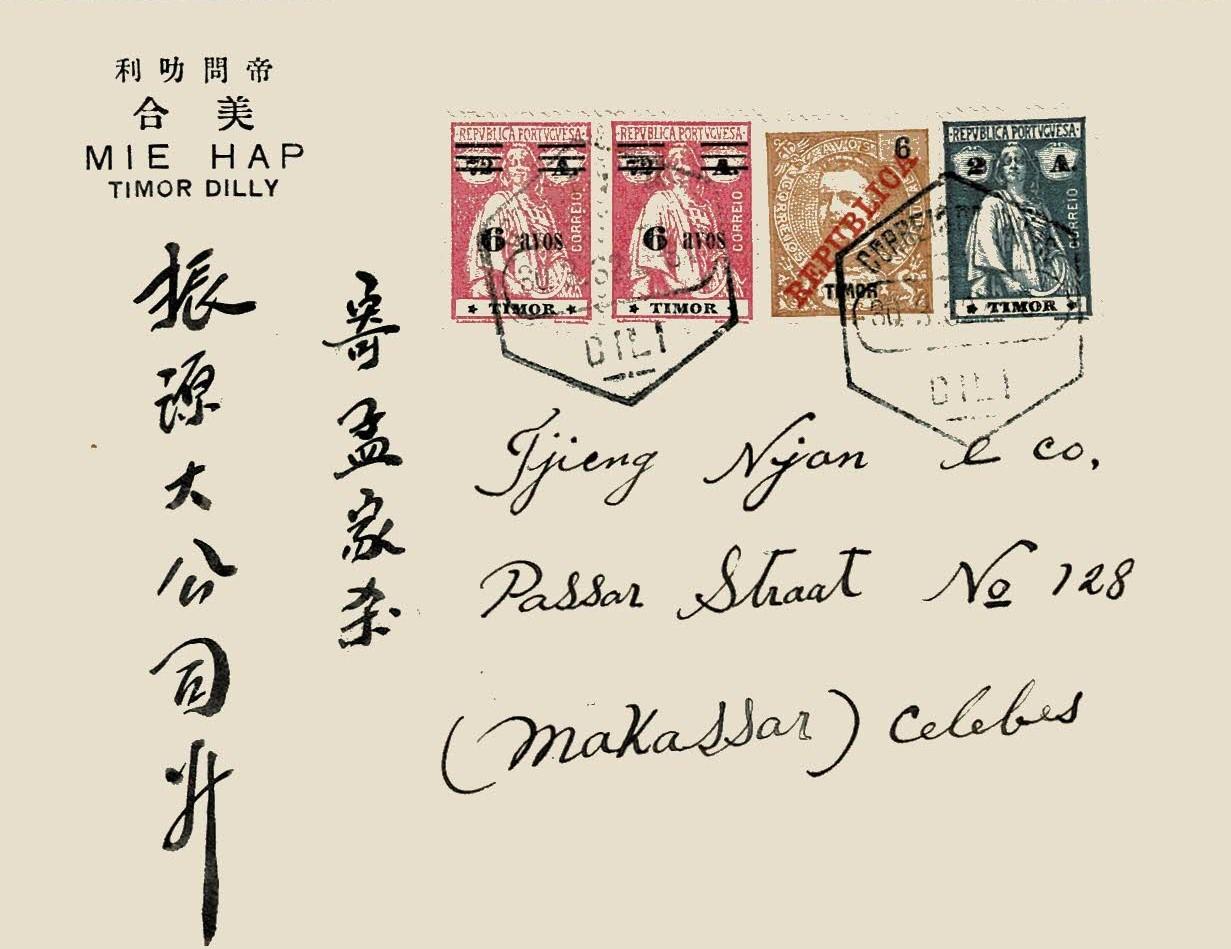 利叻問帝
合美
MIE HAP
TIMOR DILLY
REPVBLICA PORTVGVESA
A.
6 avos
CORREIO
TIMOR
REPVBLICA PORTVGVESA
A.
6 avos
CORREIO
TIMOR
6
REPUBLICA
TIMOR
REPVBLICA PORTVGVESA
2 A.
CORREIO
TIMOR
DILI
CORREIO
DILI
寄孟家杀
振源大公司升
Tjieng Njan & co,
Passar Straat No 128
(Makassar) Celebes